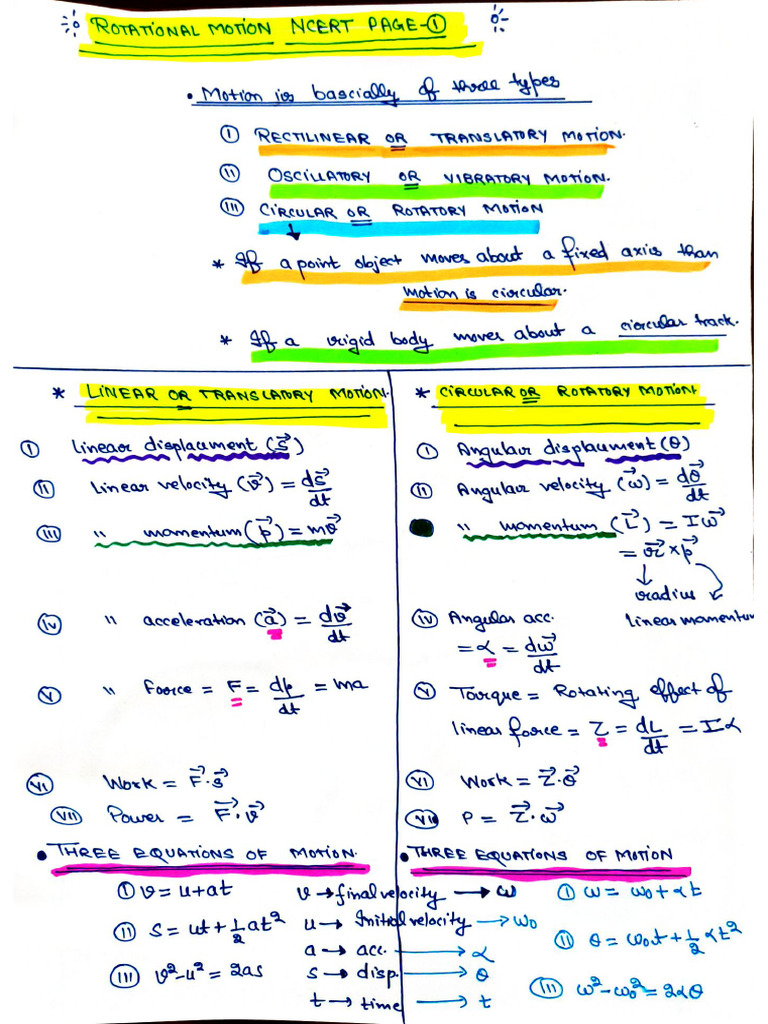 ROTATIONAL MOTION NCERT PAGE-①
• Motion is bascially of three types
Ⓘ RECTILINEAR OR TRANSLATORY MOTION.
ⓘⓘ OSCILLATORY OR VIBRATORY MOTION.
ⓘⓘⓘ CIRCULAR OR ROTATORY MOTION
↓
* If a point object moves about a fixed axis than
motion is circular.
* If a rigid body moves about a circular track.
* LINEAR OR TRANSLATORY MOTION.
(I) Linear displacument (s⃗)
(II) Linear velocity (v⃗) = ds⃗/dt
(III) " momentum (p⃗) = mv⃗
(IV) " acceleration (a⃗) = dv⃗/dt
(V) " Foorce = F = dp/dt = ma
(VI) Work = F⃗.s⃗
(VII) Power = F⃗.v⃗
• THREE EQUATIONS OF MOTION.
(I) v = u+at
(II) s = ut + 1/2 at²
(III) v²-u² = 2as
* CIRCULAR OR ROTATORY MOTION.
(I) Angular displaument (θ)
(II) Angular velocity (ω⃗) = dθ⃗/dt
" momentum (L⃗) = Iω⃗
= r⃗ × p⃗
radius
Linear momentum
(IV) Angular acc.
= α = dω⃗/dt
(V) Torque = Rotating effect of
linear force = τ = dL/dt = Iα
(VI) Work = τ⃗.θ⃗
(VII) P = τ⃗.ω⃗
• THREE EQUATIONS OF MOTION
v → final velocity → ω
u → Initial velocity → ω₀
a → acc. → α
s → disp. → θ
t → time → t
(I) ω = ω₀ + αt
(II) θ = ω₀t + 1/2 αt²
(III) ω²-ω₀² = 2αθ